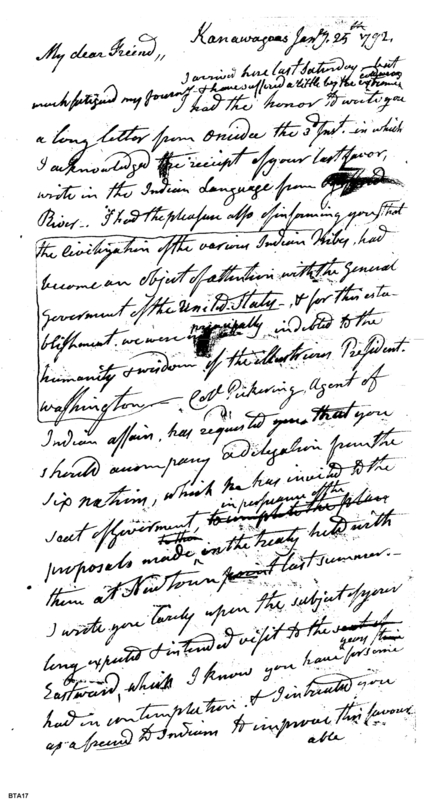 Kanawagoas Jany. 25th 1792.
My dear Friend,,
I arrived here last Saturday but
much fatigued my journey & have suffered a little by the
I had the honor to write you
a long letter from Oneida the 3d Inst. in which
I acknowledged the receipt of your last favor,
wrote in the Indian Language from
River -. I had the pleasure also of informing you, that
the civilization of the various Indian Tribes, had
become an object of attention with the General
Government of the United States -, & for this esta-
blishment, we were principally indebted to the
humanity & wisdom of the illustrious President.
Washington — Coll. Pickering, Agent of
Indian affairs, has requested that you
should accompany a diligation from the
six nations, which he has invited to the
in persuance of the
seat of Goverment, to compleat the plan
proposals made in the treaty held with
them at Newtown point last summer. -
I wrote you lately upon the subject of your
long expected & intended visit to the seat of
Eastward, which I know you have for some years
had in contemplation. & I intreated you
as a friend to Indians to improve this favour
able
BTA17